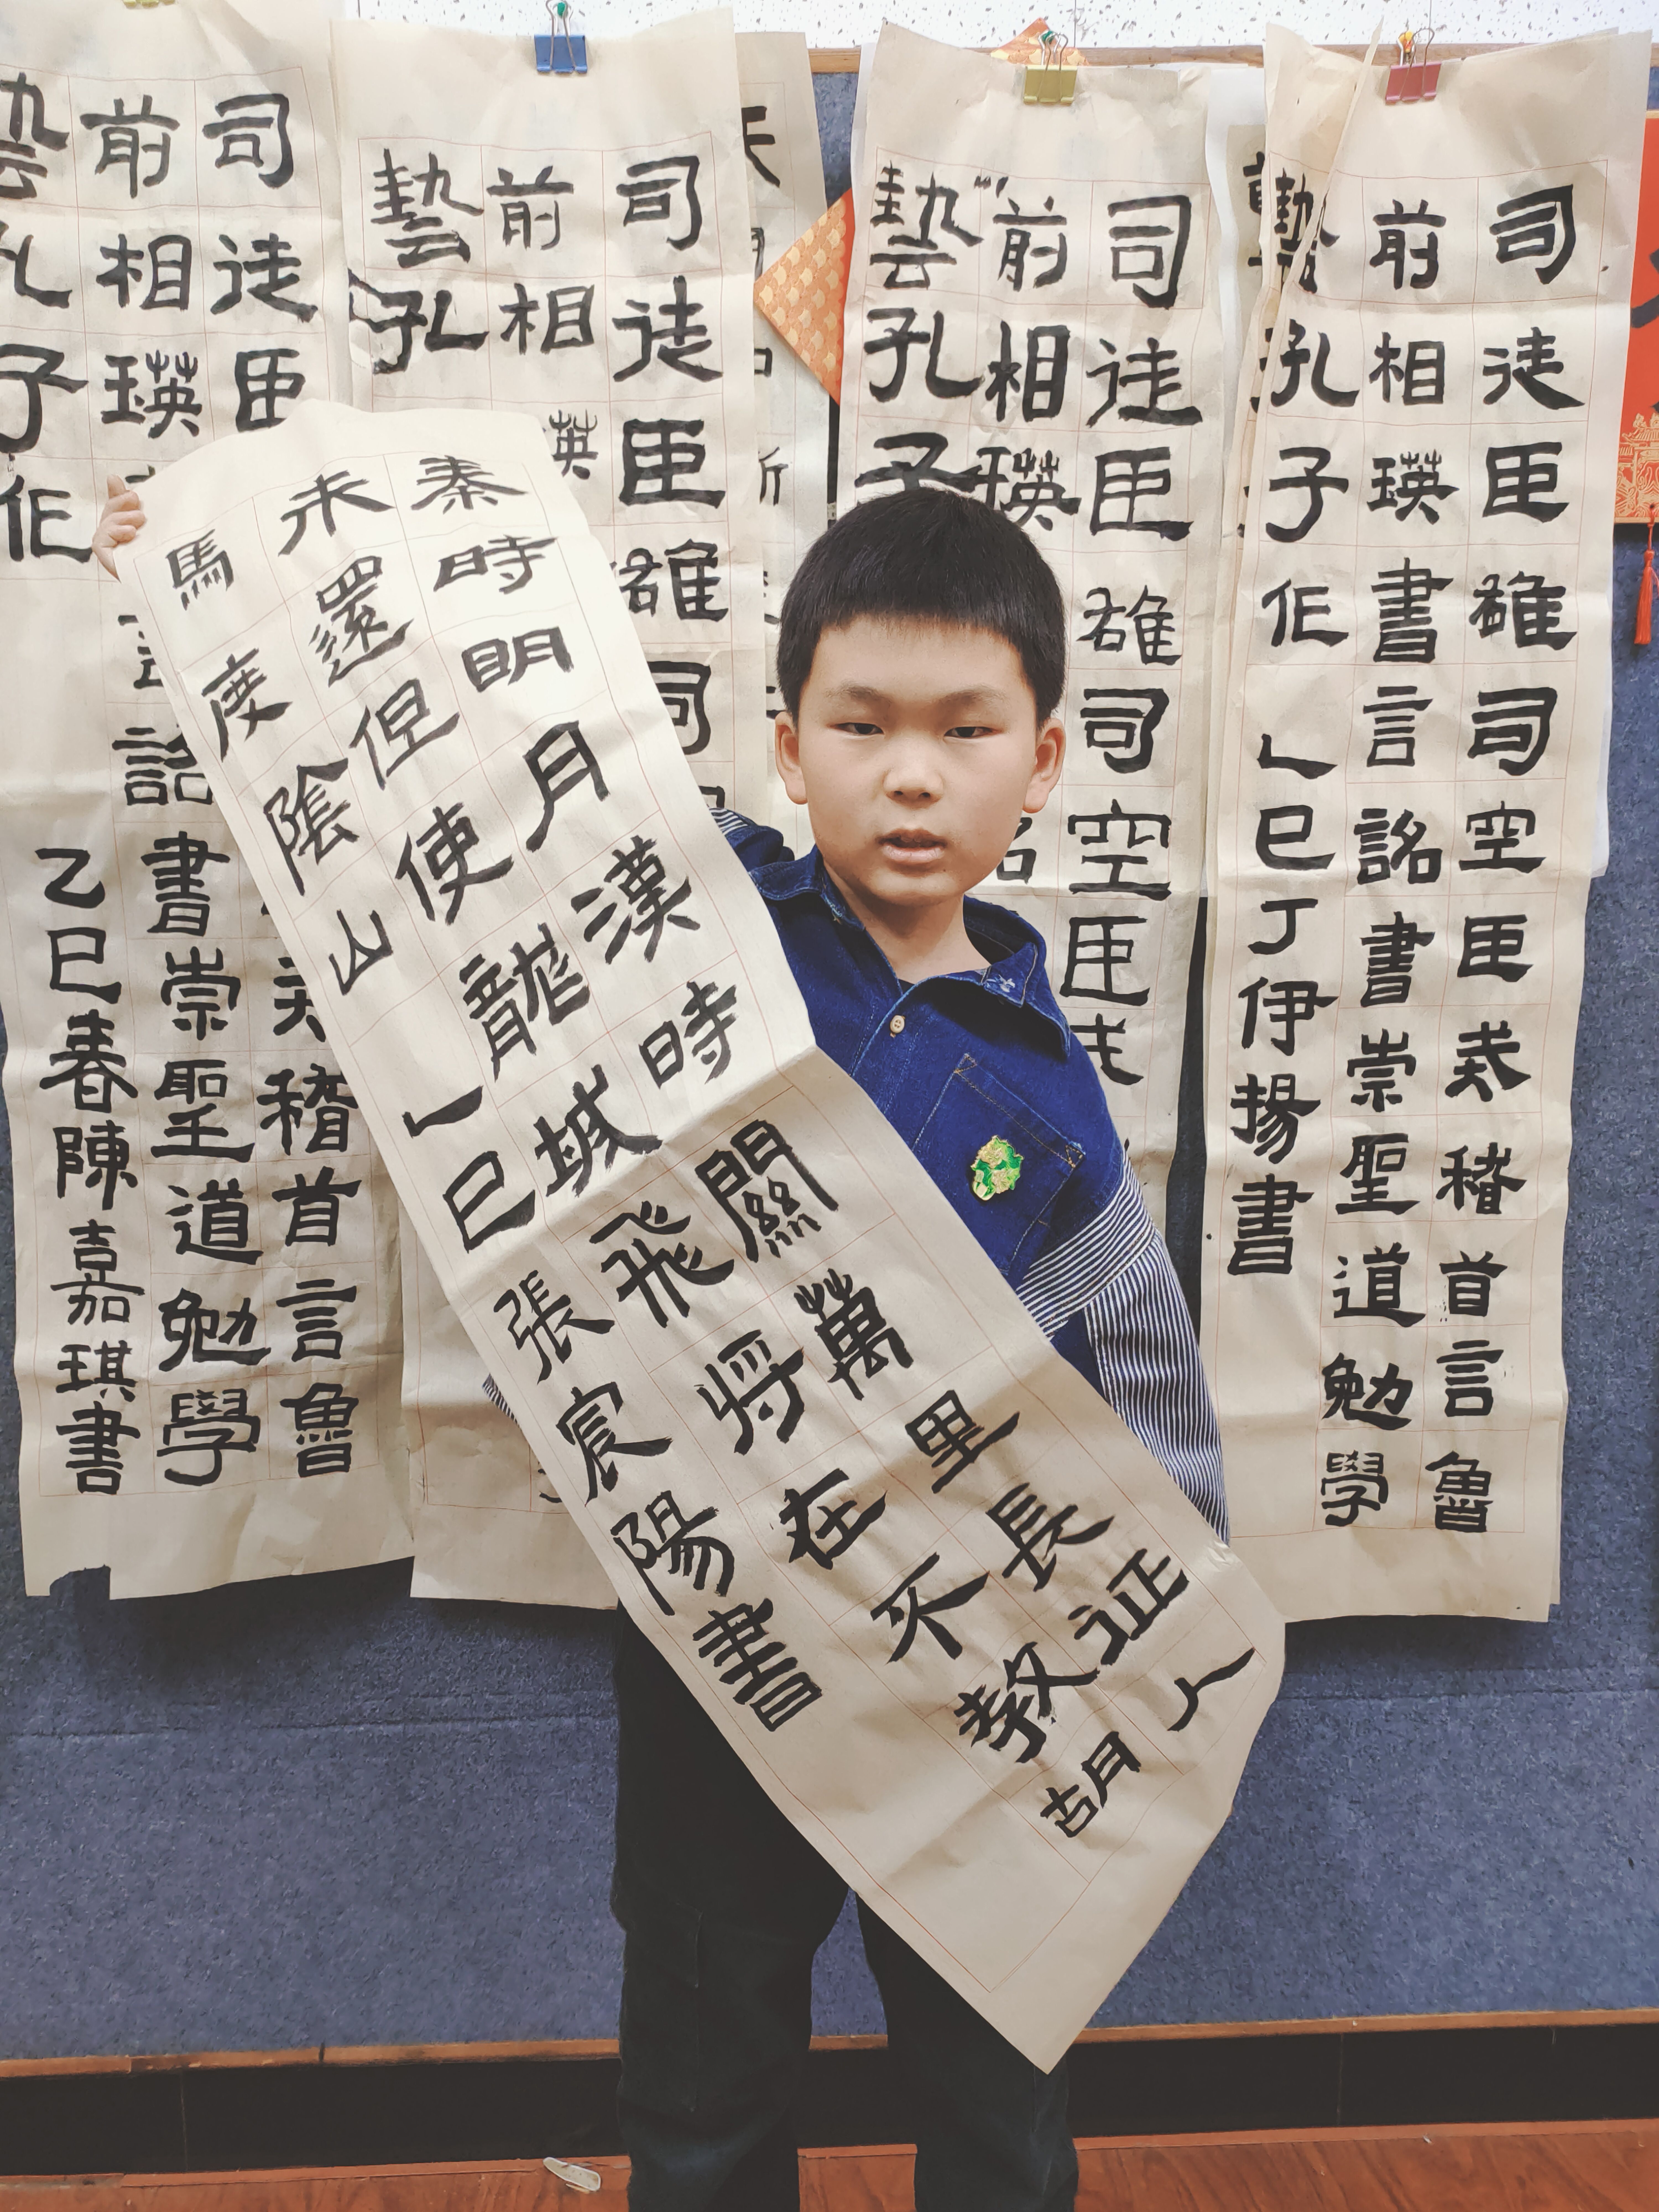 秦時明月漢時關萬里長征人
未還但使龍城飛將在不教胡
馬度陰山
乙巳張宸陽書
司徒臣雄司空臣戒稽首言魯
前相瑛書言詔書崇聖道勉學
藝孔子作
乙巳丁伊揚書
司徒臣雄司空臣戒
前相瑛
藝孔子
司徒臣雄司
前相瑛
藝孔
司徒臣戒稽首言魯
前相瑛言詔書崇聖道勉學
藝孔子作
乙巳春陳嘉琪書